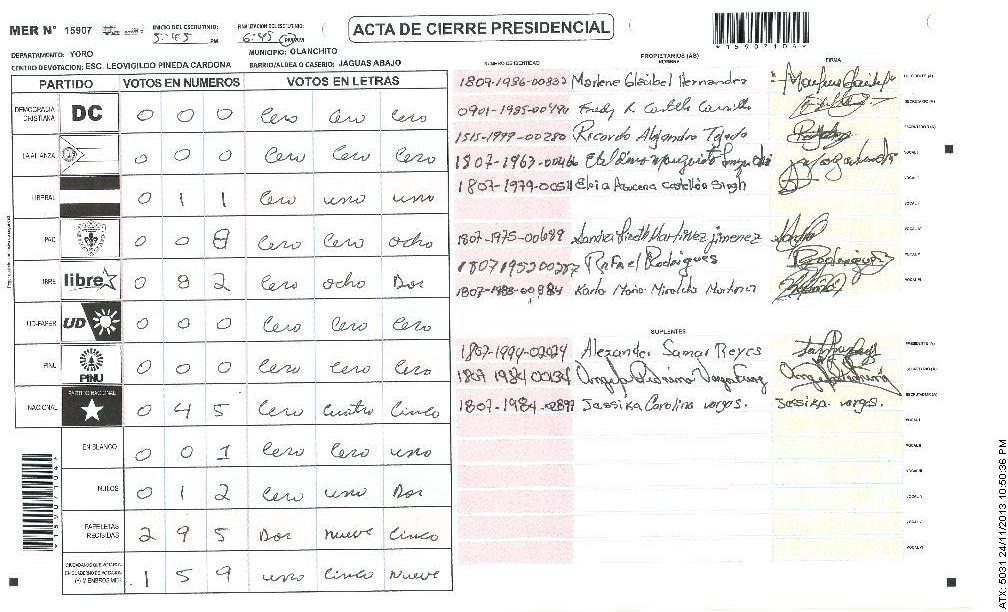 MER N° 15907 INICIO DEL ESCRUTINIO: 5:45 PM FINALIZACION DEL ESCRUTINIO: 6:45 PM/AM
ACTA DE CIERRE PRESIDENCIAL
*15907104*
DEPARTAMENTO: YORO MUNICIPIO: OLANCHITO
CENTRO DEVOTACION: ESC. LEOVIGILDO PINEDA CARDONA BARRIO/ALDEA O CASERIO: JAGUAS ABAJO
PARTIDO VOTOS EN NUMEROS VOTOS EN LETRAS
DEMOCRACIA CRISTIANA DC 0 0 0 Cero Cero Cero
LA ALIANZA 0 0 0 Cero Cero Cero
LIBERAL 0 1 1 Cero uno uno
PAC 0 0 8 Cero Cero ocho
LIBRE libre 0 8 2 Cero ocho Dos
UD-FAPER UD 0 0 0 Cero Cero Cero
PINU PINU 0 0 0 Cero Cero Cero
NACIONAL PARTIDO NACIONAL 0 4 5 Cero Cuatro Cinco
EN BLANCO 0 0 1 Cero Cero uno
NULOS 0 1 2 Cero uno Dos
PAPELETAS RECIBIDAS 2 9 5 Dos nueve Cinco
CIUDADANOS QUE VOTARON 1 5 9 uno Cinco nueve
(+) MIEMBROS MER
NUMERO DE IDENTIDAD PROPIETARIOS (AS) NOMBRE FIRMA
1807-1986-00832 Marlene Gleibel Hernandez PRESIDENTE (A)
0901-1985-00490 Fredy R SECRETARIO (A)
1515-1999-00280 Ricardo Alejandro Tejeda ESCRUTADOR (A)
1807-1963-00466 VOCAL I
1807-1979-0054 Elvia Azucena Castellón Singh VOCAL II
VOCAL III
1807-1975-00688 Sandra Lizeth Martinez Jimenez VOCAL IV
1807195200287 Rafael Rodrigues Rodriguez VOCAL V
1807-1983-00984 Karla Maria Miralda Martinez VOCAL VI
SUPLENTES
1807-1994-02024 Alexander Samar Reyes PRESIDENTE (A)
1807 1984 00134 SECRETARIO (A)
1807-1984-02897 Jessika Carolina vargas. Jessika vargas. ESCRUTADOR (A)
VOCAL I
VOCAL II
VOCAL III
VOCAL IV
VOCAL V
VOCAL VI
*15907104*
ATX: 5031 24/11/2013 10:50:36 PM